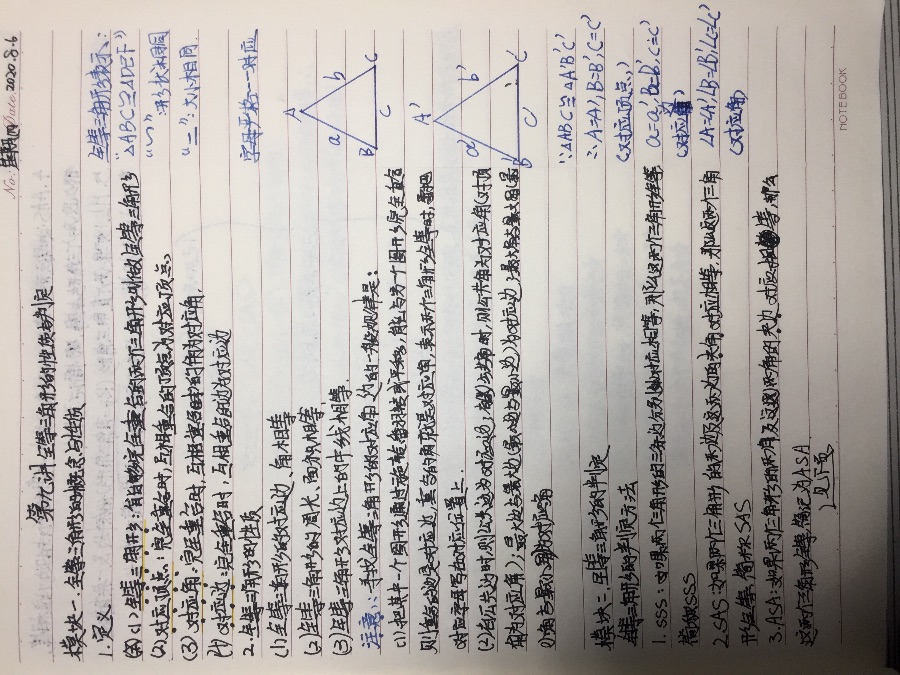 No.:
Date 2020.8.6
第九讲 全等三角形的性质与判定
模块一.全等三角形的概念与性质
1.定义
(1)全等三角形:能够完全重合的两个三角形叫做全等三角形
(2)对应顶点:完全重合时,互相重合的顶点为对应顶点,
(3)对应角:完全重合时,互相重合的角为对应角,
(4)对应边:完全重合时,互相重合的边为对应边
2.全等三角形的性质
(1)全等三角形的对应边、角相等
(2)全等三角形的周长、面积相等,
(3)全等三角形对应边上的中线相等,
注意:寻找全等三角形的对应角、边的一般规律是:
(1)把其中一个图形通过旋转翻折或平移,能与另一个图形完全重合
则重合的边是对应边,重合的角就是对应角,表示两个三角形全等时,要把
对应字母写在对应位置上.
(2)有公共边时,则公共边为对应边,有公共角时,则公共角为对应角(对顶
角为对应角);最大边与最大边(最小边与最小边)为对应边;最大角与最大角(最
小角与最小角)
模块二.全等三角形的判定
全等三角形的判定方法
1.SSS:如果两个三角形的三条边分别对应相等,那么这两个三角形全等
简称SSS
2.SAS:如果两个三角形的两边及这两边的夹角对应相等,那么这两个三角
形全等,简称SAS
3.ASA:如果两个三角形的两角及这两角的夹边对应相等,那么
这两个三角形全等简记为ASA
见下页
全等三角形表示:
"△ABC≌△DEF"
"∽":形状相同
"=":大小相同
字母要一一对应
A
a
b
B
c
C
A'
a'
b'
b
c'
C
∵△ABC≌△A'B'C'
∴A=A',B=B',C=C'
(对应顶点)
a=a',b=b',c=c'
(对应边)
∠A=∠A',∠B=∠B',∠C=∠C'
(对应角)
NOTEBOOK